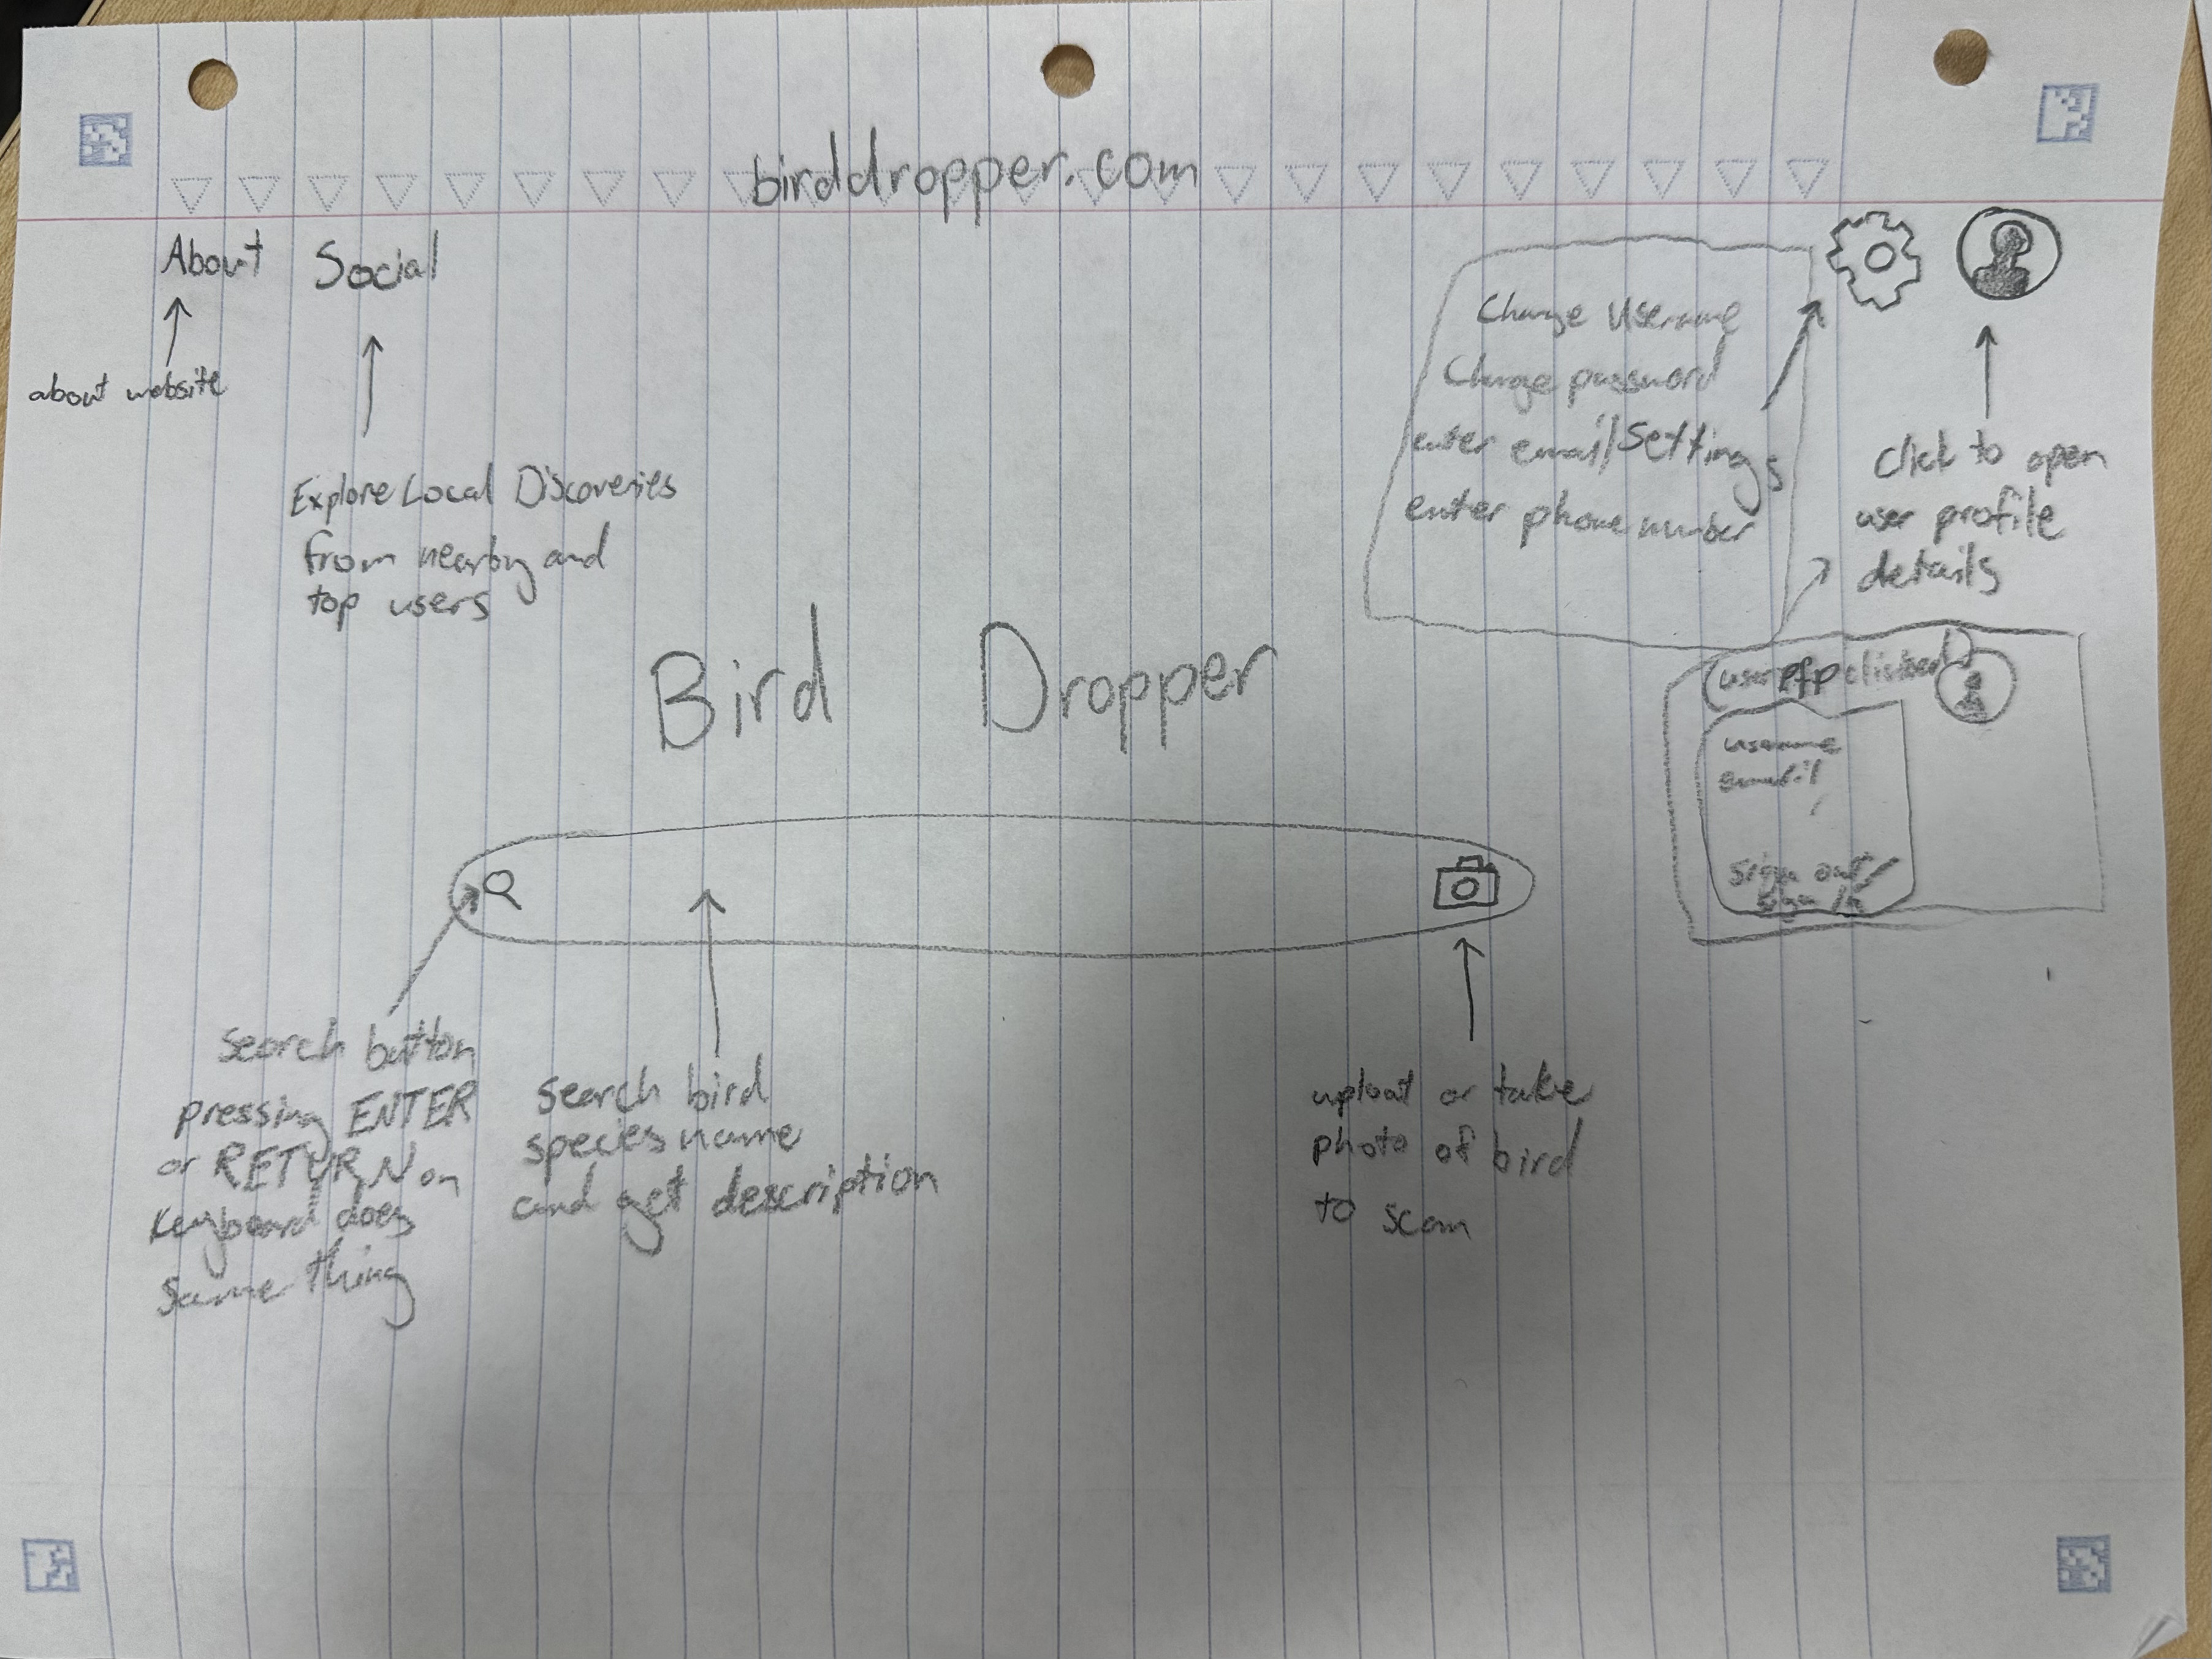 birddropper.com
About Social
about website
Explore Local Discoveries
from nearby and
top users
Change Username
Change password
enter email
Settings
enter phone number
click to open
user profile
details
Bird Dropper
(user pfp clicked)
username
email
sign out/
sign in
search button
pressing ENTER
or RETURN on
keyboard does
same thing
search bird
species name
and get description
upload or take
photo of bird
to scan